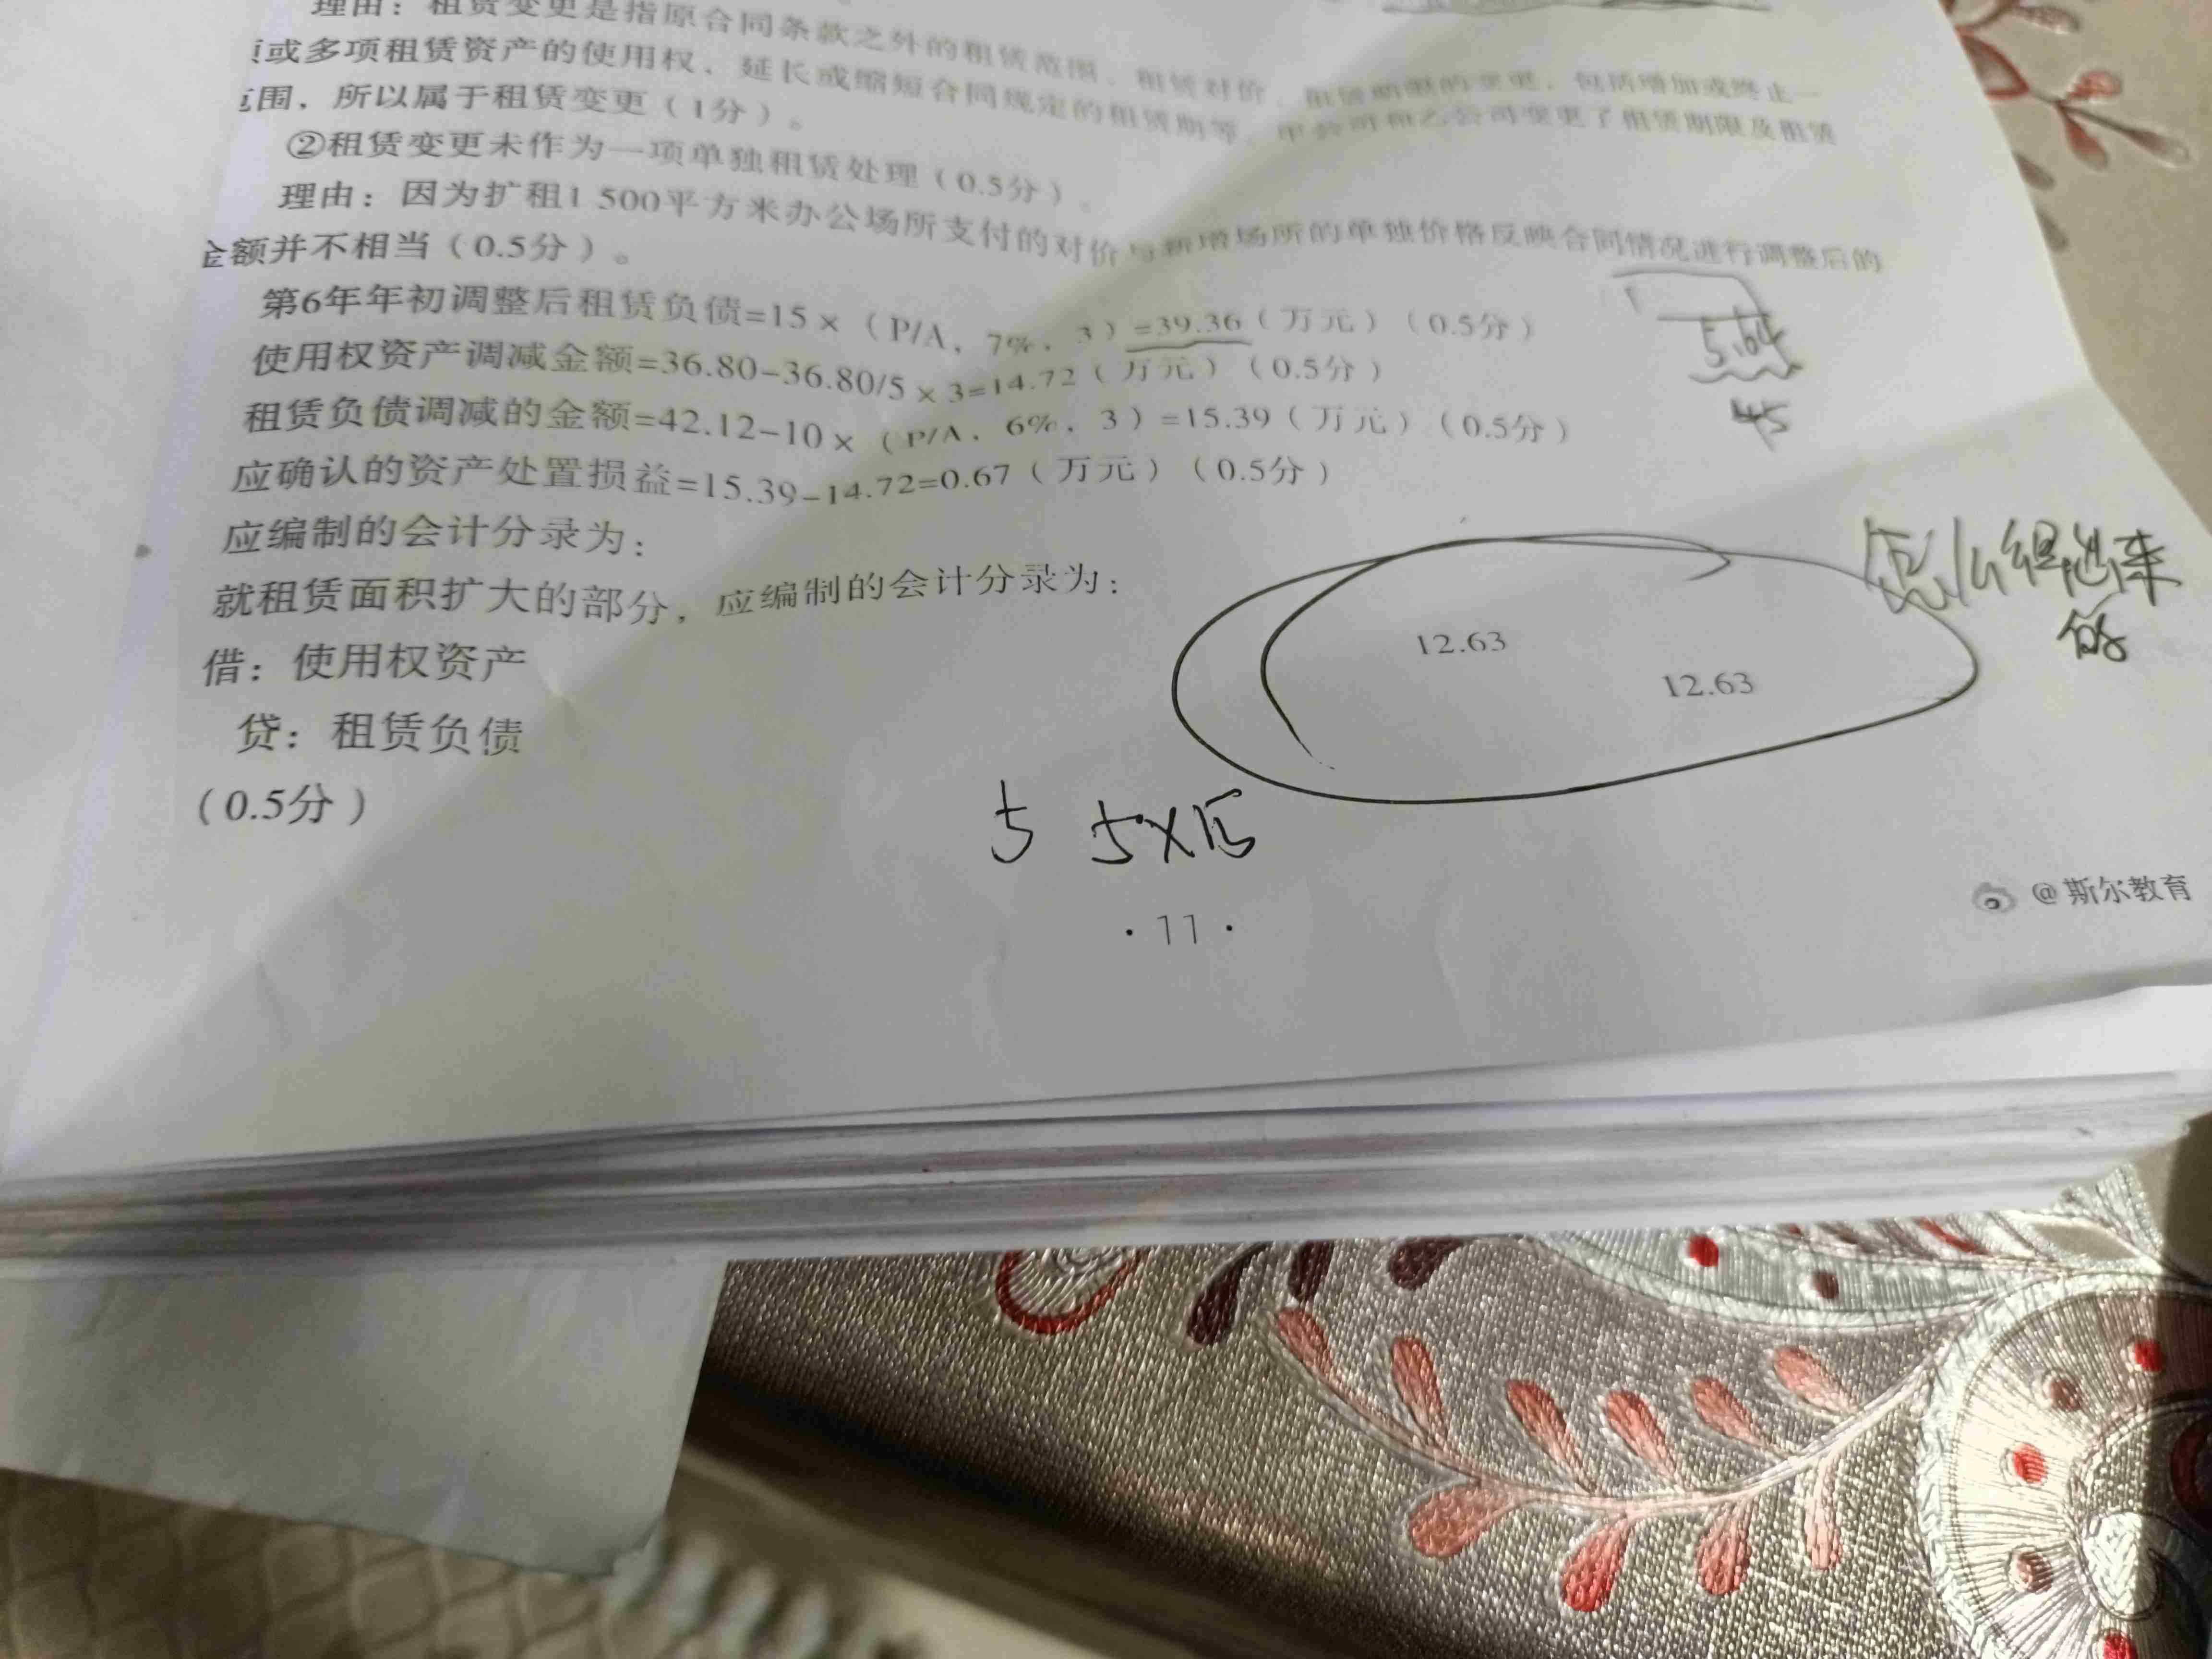 理由：租赁变更是指原合同条款之外的租赁范围、租赁对价、租赁期限的变更，包括增加或终止一
项或多项租赁资产的使用权，延长或缩短合同规定的租赁期等。甲公司和乙公司变更了租赁期限及租赁
范围，所以属于租赁变更（1分）。
②租赁变更未作为一项单独租赁处理（0.5分）。
理由：因为扩租1 500平方米办公场所支付的对价与新增场所的单独价格反映合同情况进行调整后的
金额并不相当（0.5分）。
第6年年初调整后租赁负债=15×（P/A，7%，3）=39.36（万元）（0.5分）
使用权资产调减金额=36.80-36.80/5×3=14.72（万元）（0.5分）
租赁负债调减的金额=42.12-10×（P/A，6%，3）=15.39（万元）（0.5分）
应确认的资产处置损益=15.39-14.72=0.67（万元）（0.5分）
5.64
45
应编制的会计分录为：
就租赁面积扩大的部分，应编制的会计分录为：
借：使用权资产 12.63
贷：租赁负债 12.63
（0.5分）
怎么得出来
的
5 5×15
·11·
@斯尔教育